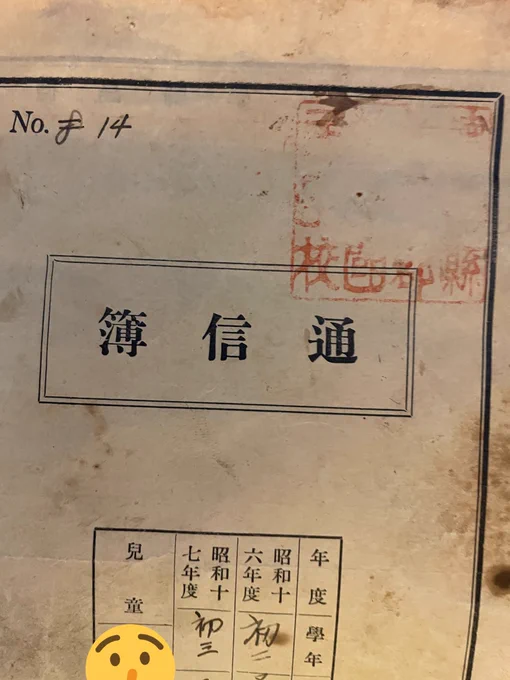 No. 14
通信簿
年度
學年
昭和十
六年度
初二
昭和十
七年度
初三
兒童